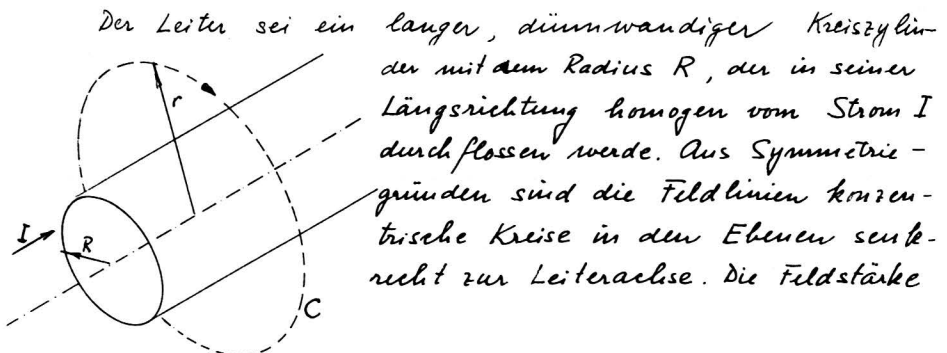 Der Leiter sei ein langer, dünnwandiger Kreiszylin-
der mit dem Radius R, der in seiner
Längsrichtung homogen vom Strom I
durchflossen werde. Aus Symmetrie-
gründen sind die Feldlinien konzen-
trische Kreise in den Ebenen senk-
recht zur Leiterachse. Die Feldstärke
r
I
R
C